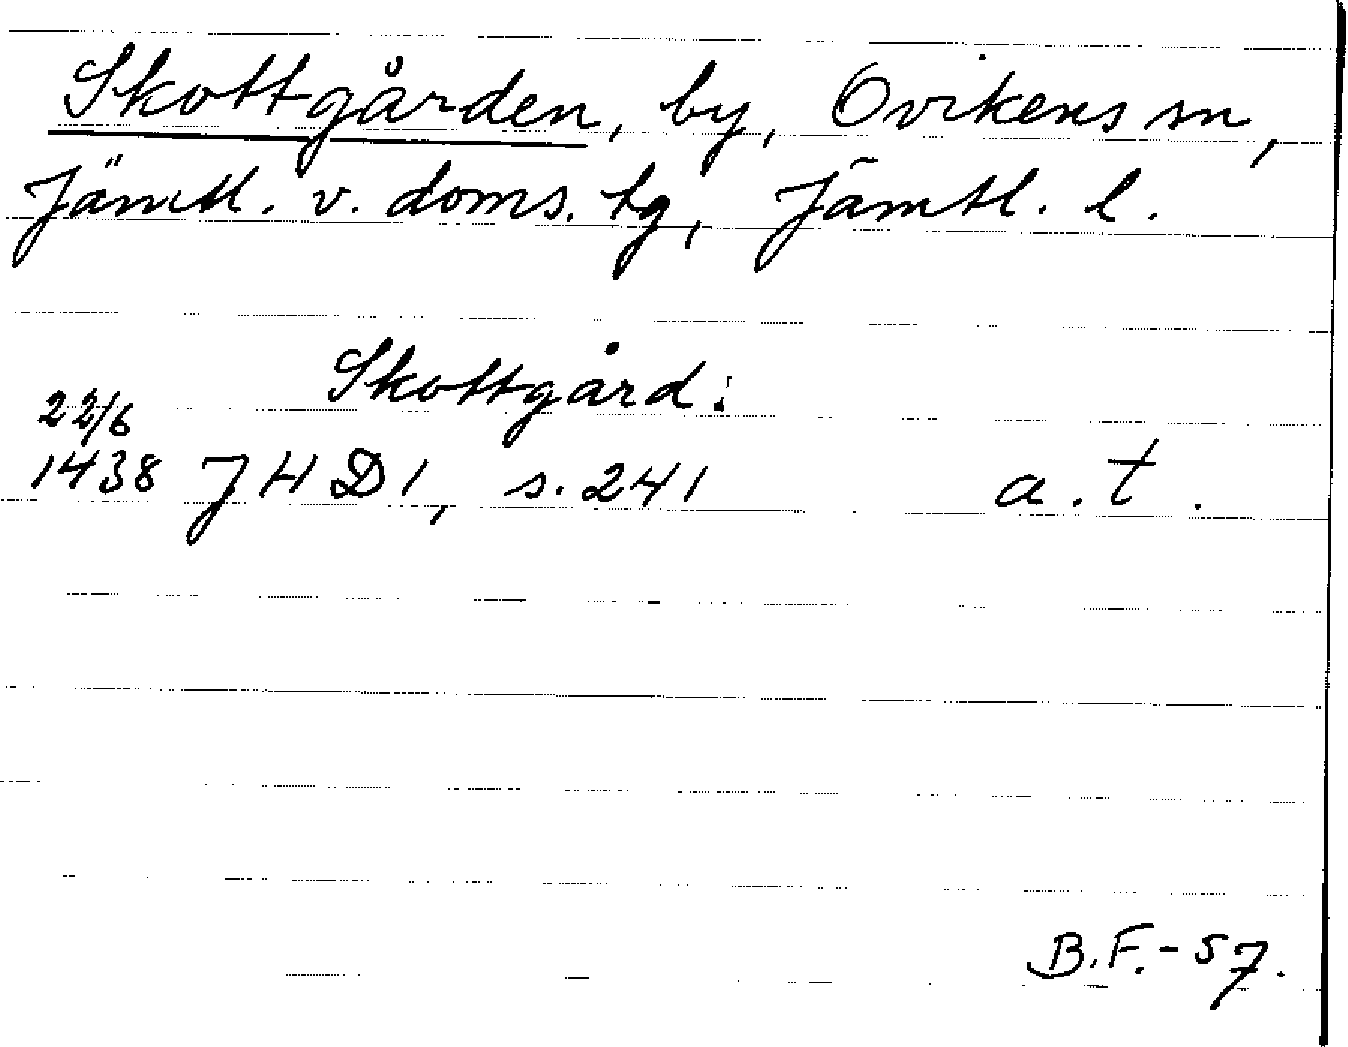 Skottgården, by, Ovikens sn,
Jämtl. v. doms. tg, Jämtl. l.
Skottgård:
22/6
1438 JHD 1, s. 241 a. t.
B.F.-57.